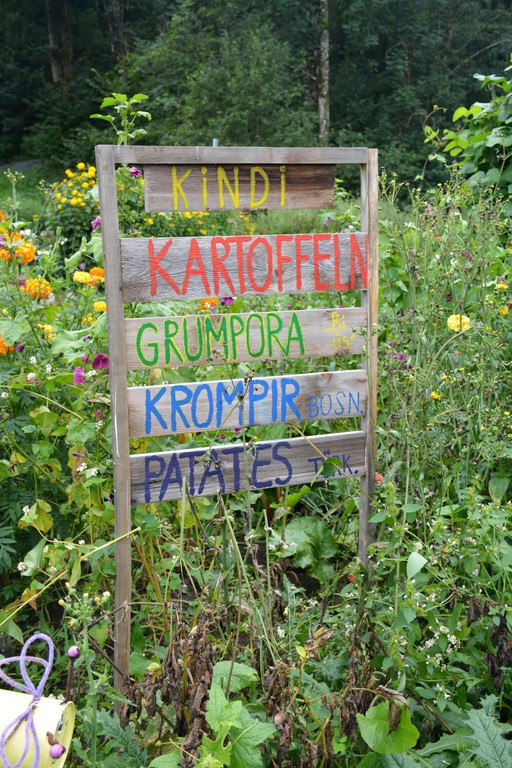 KiNDi
KARTOFFELN
GRUMPORA
KROMPIR BOSN.
PATATES TÜRK.